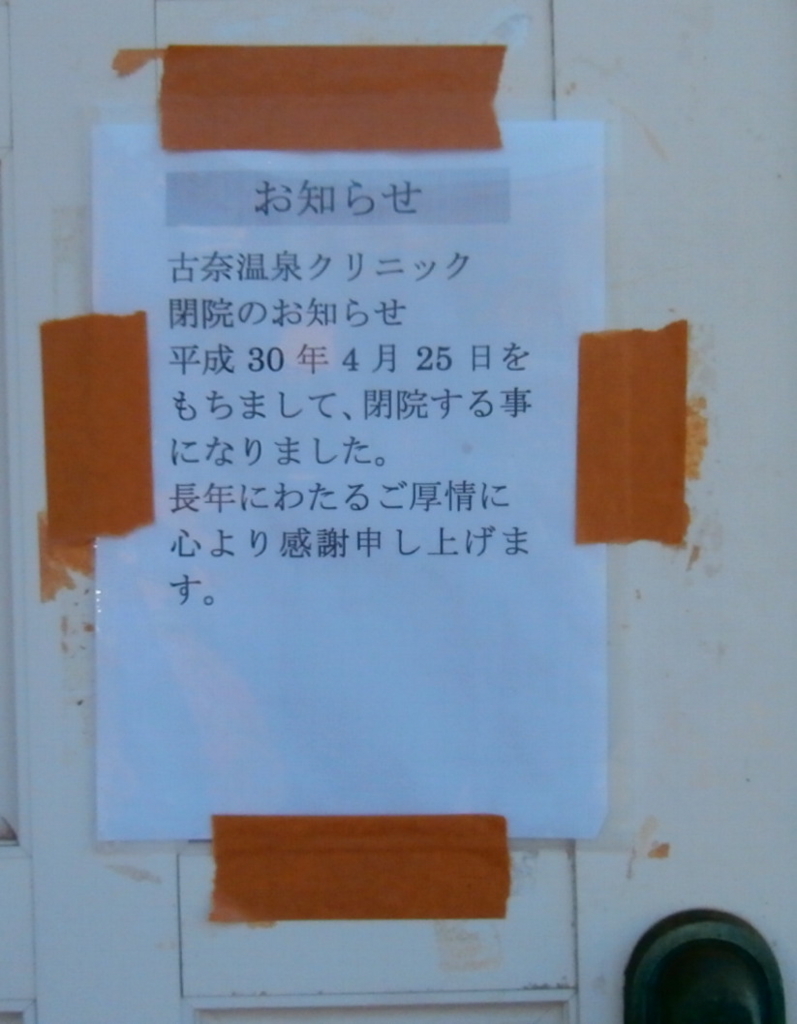 お知らせ
古奈温泉クリニック
閉院のお知らせ
平成 30 年 4 月 25 日を
もちまして、閉院する事
になりました。
長年にわたるご厚情に
心より感謝申し上げま
す。